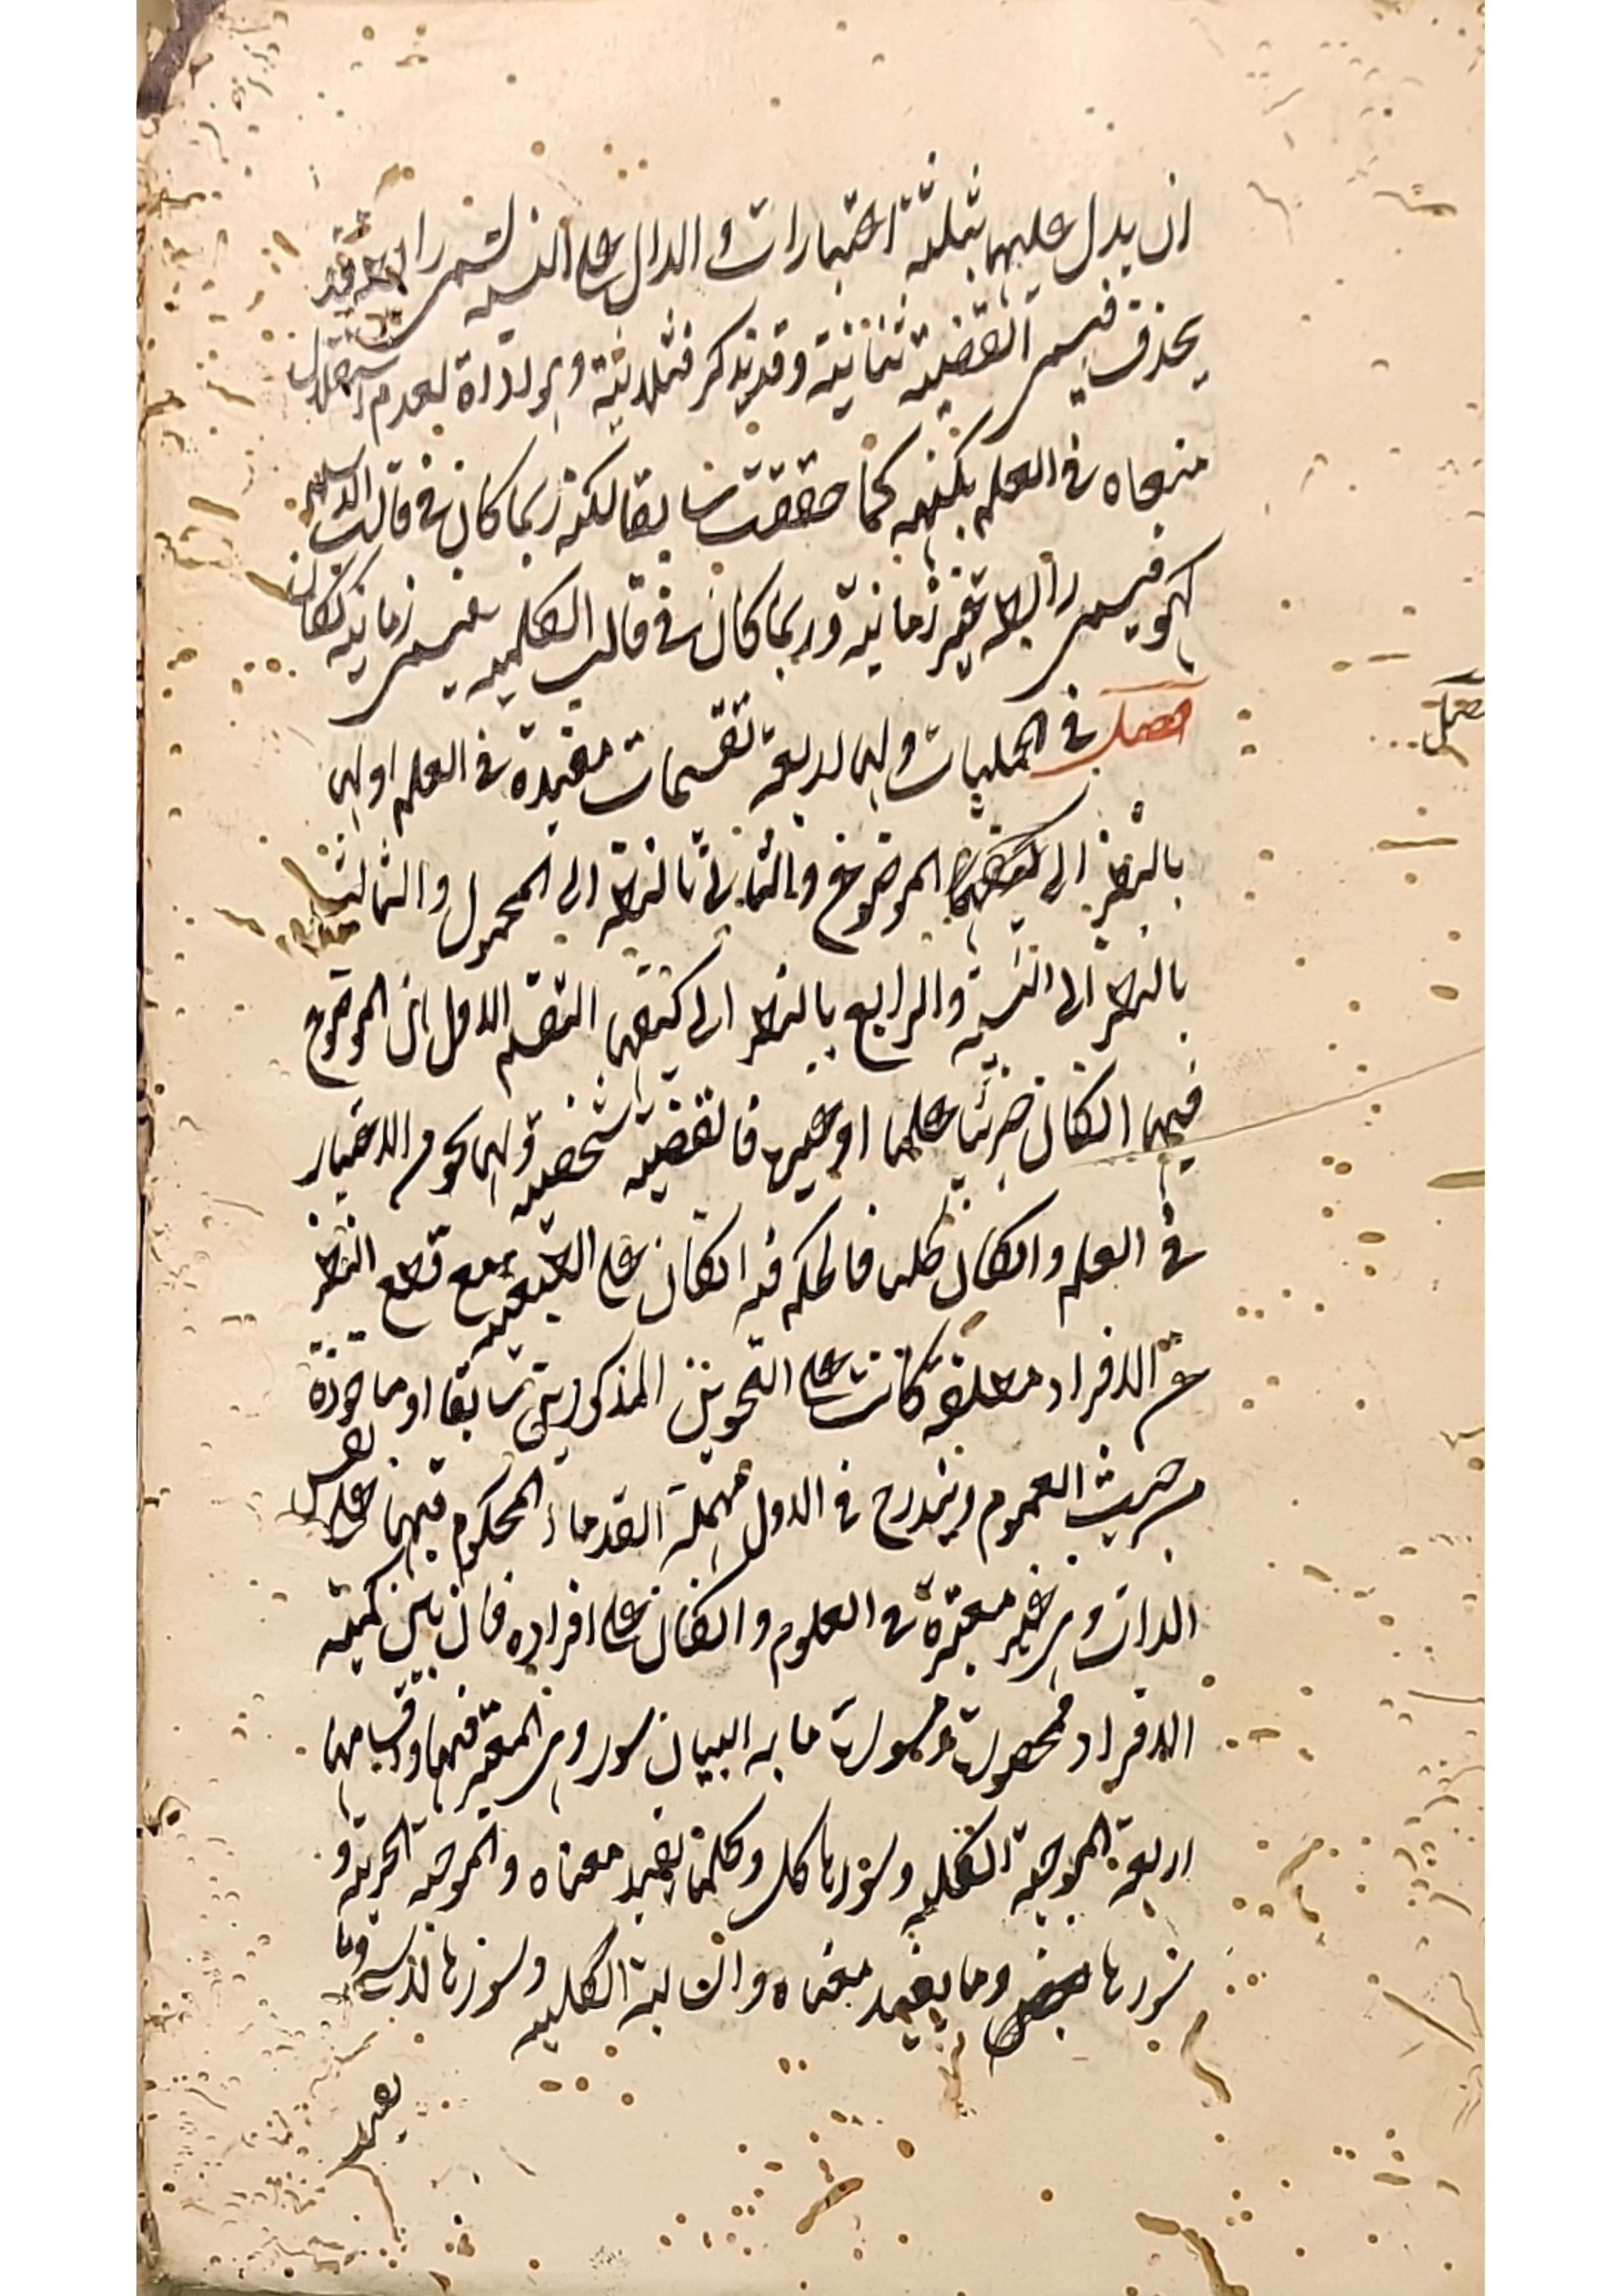 ان يدل عليها بثلثة اعتبارات والدال على النسبة يسمى رابطة وقد
يحذف فيسمى القضية ثنائية وقد يذكر فثلاثية وهو اداة لعدم استقلال
معناه فى العلم بكنهه كما حققت سابقا لكنه ربما كان فى قالب الاسم
كهو فيسمى رابطة غير زمانية وربما كان فى قالب الكلمة فيسمى زمانية ككان
فصل فى الحمليات ولها اربعة تقسيمات مفيدة فى العلم اولها
بالنظر الى الموضوع والثانى بالنظر الى المحمول والثالث
بالنظر الى النسبة والرابع بالنظر الى كيفيتها التقسيم الاول ان الموضوع
فيها انكان جزئيا علما او غيره فالقضية شخصية ولها نحو من الاعتبار
فى العلم وانكان كليا فالحكم فيه انكان على الطبيعة مع قطع النظر
عن الافراد مطلقة كانت على النحوين المذكورين سابقا او ماخوذة
من حيث العموم ويندرج فى الاول مهملة القدماء المحكوم فيها على نفس
الذات وهى غير معتبرة فى العلوم وانكان على افراده فان بين كمية
الافراد فمحصورة ومسورة ما به البيان سور وهى المعتبر فيها واقسامها
اربعة الموجبة الكلية وسورها كل وكلما يفيد معناه والموجبة الجزئية و
سورها بعض وما يفيد معناه والسالبة الكلية وسورها لا شئ وما
يفيد
فصل